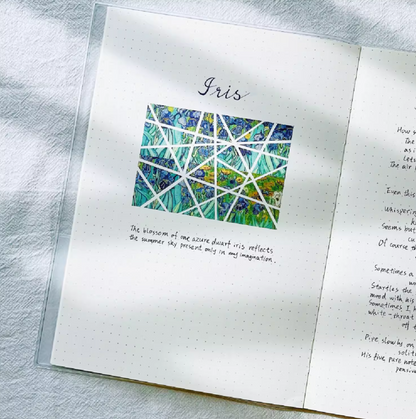 Iris
The blossom of one azure dwarf iris reflects
the summer sky present only in my imagination.
How
The
as i
lets
The air
Even this
Whispering
Seems but
cu
Of course th
Sometimes a
wo
Startles the
mood with his
Sometimes I h
white-throat
of
Pipe slowly on
solit
His five pure note
pensiv